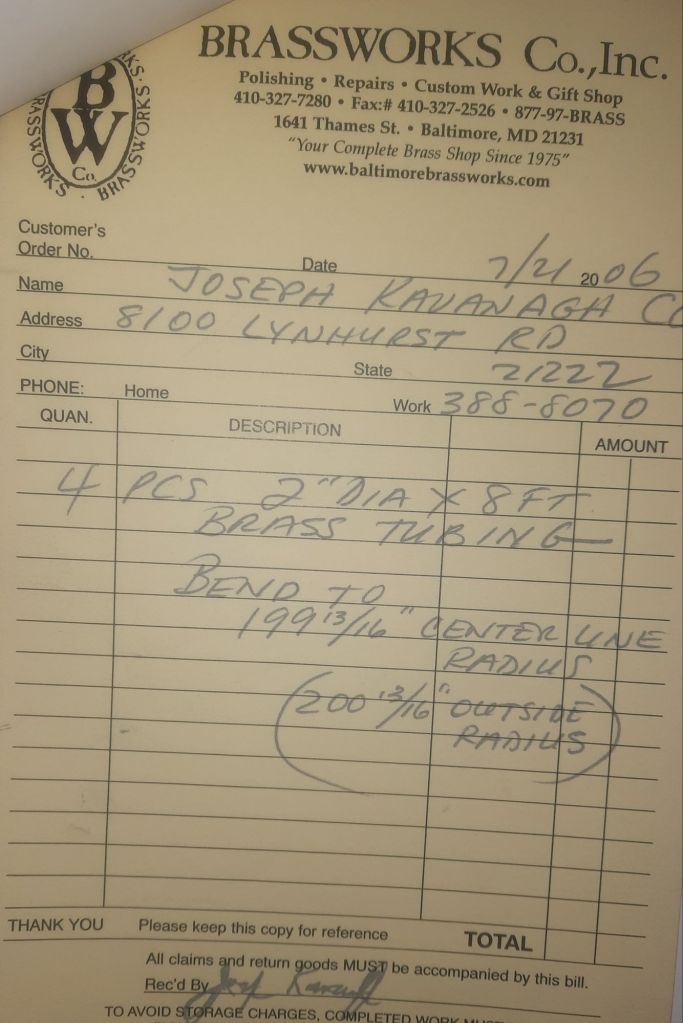 BRASSWORKS Co., Inc.
Polishing • Repairs • Custom Work & Gift Shop
410-327-7280 • Fax:# 410-327-2526 • 877-97-BRASS
1641 Thames St. • Baltimore, MD 21231
"Your Complete Brass Shop Since 1975"
www.baltimorebrassworks.com
B
W
Co.
BRASSWORKS · BRASSWORKS ·
Customer's
Order No.
Date 7/21 2006
Name JOSEPH KAVANAGH CO
Address 8100 LYNHURST RD
City State 21222
PHONE: Home Work 388-8070
QUAN. DESCRIPTION AMOUNT
4 PCS 2" DIA X 8 FT
BRASS TUBING
BEND TO
199 13/16" CENTER LINE
RADIUS
(200 13/16" OUTSIDE
RADIUS)
THANK YOU Please keep this copy for reference TOTAL
All claims and return goods MUST be accompanied by this bill.
Rec'd By
TO AVOID STORAGE CHARGES, COMPLETED WORK